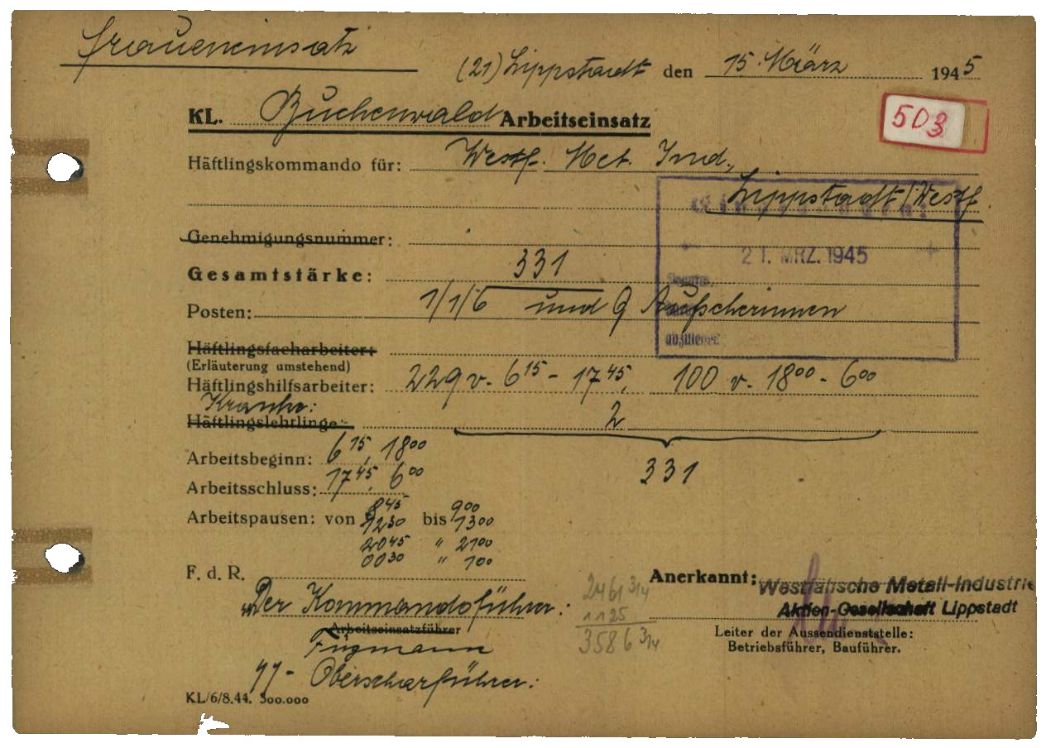 Fraueneinsatz
(21) Lippstadt den 15. März 1945
KL. Buchenwald Arbeitseinsatz
503
Häftlingskommando für: Westf. Met. Ind.,
Lippstadt/Westf.
Genehmigungsnummer:
21. MRZ. 1945
Gesamtstärke: 331
Posten: 1/1/6 und 9 Aufseherinnen
Häftlingsfacharbeiter:
(Erläuterung umstehend)
Häftlingshilfsarbeiter: 229 v. 6 15 - 17 45, 100 v. 18 00 - 6 00
Kranke:
Häftlingslehrlinge: 2
331
Arbeitsbeginn: 6 15, 18 00
Arbeitsschluss: 17 45, 6 00
Arbeitspausen: von 8 45 bis 9 00
12 30 13 00
20 45 " 21 00
00 30 " 1 00
F. d. R.
Anerkannt: Westfälische Metall-Industrie
Aktien-Gesellschaft Lippstadt
Der Kommandoführer:
Arbeitseinsatzführer
2461 3/4
1125
3586 3/4
Leiter der Aussendienststelle:
Betriebsführer, Bauführer.
Fügmann
SS-Oberscharführer:
KL/6/8.44. 500.000